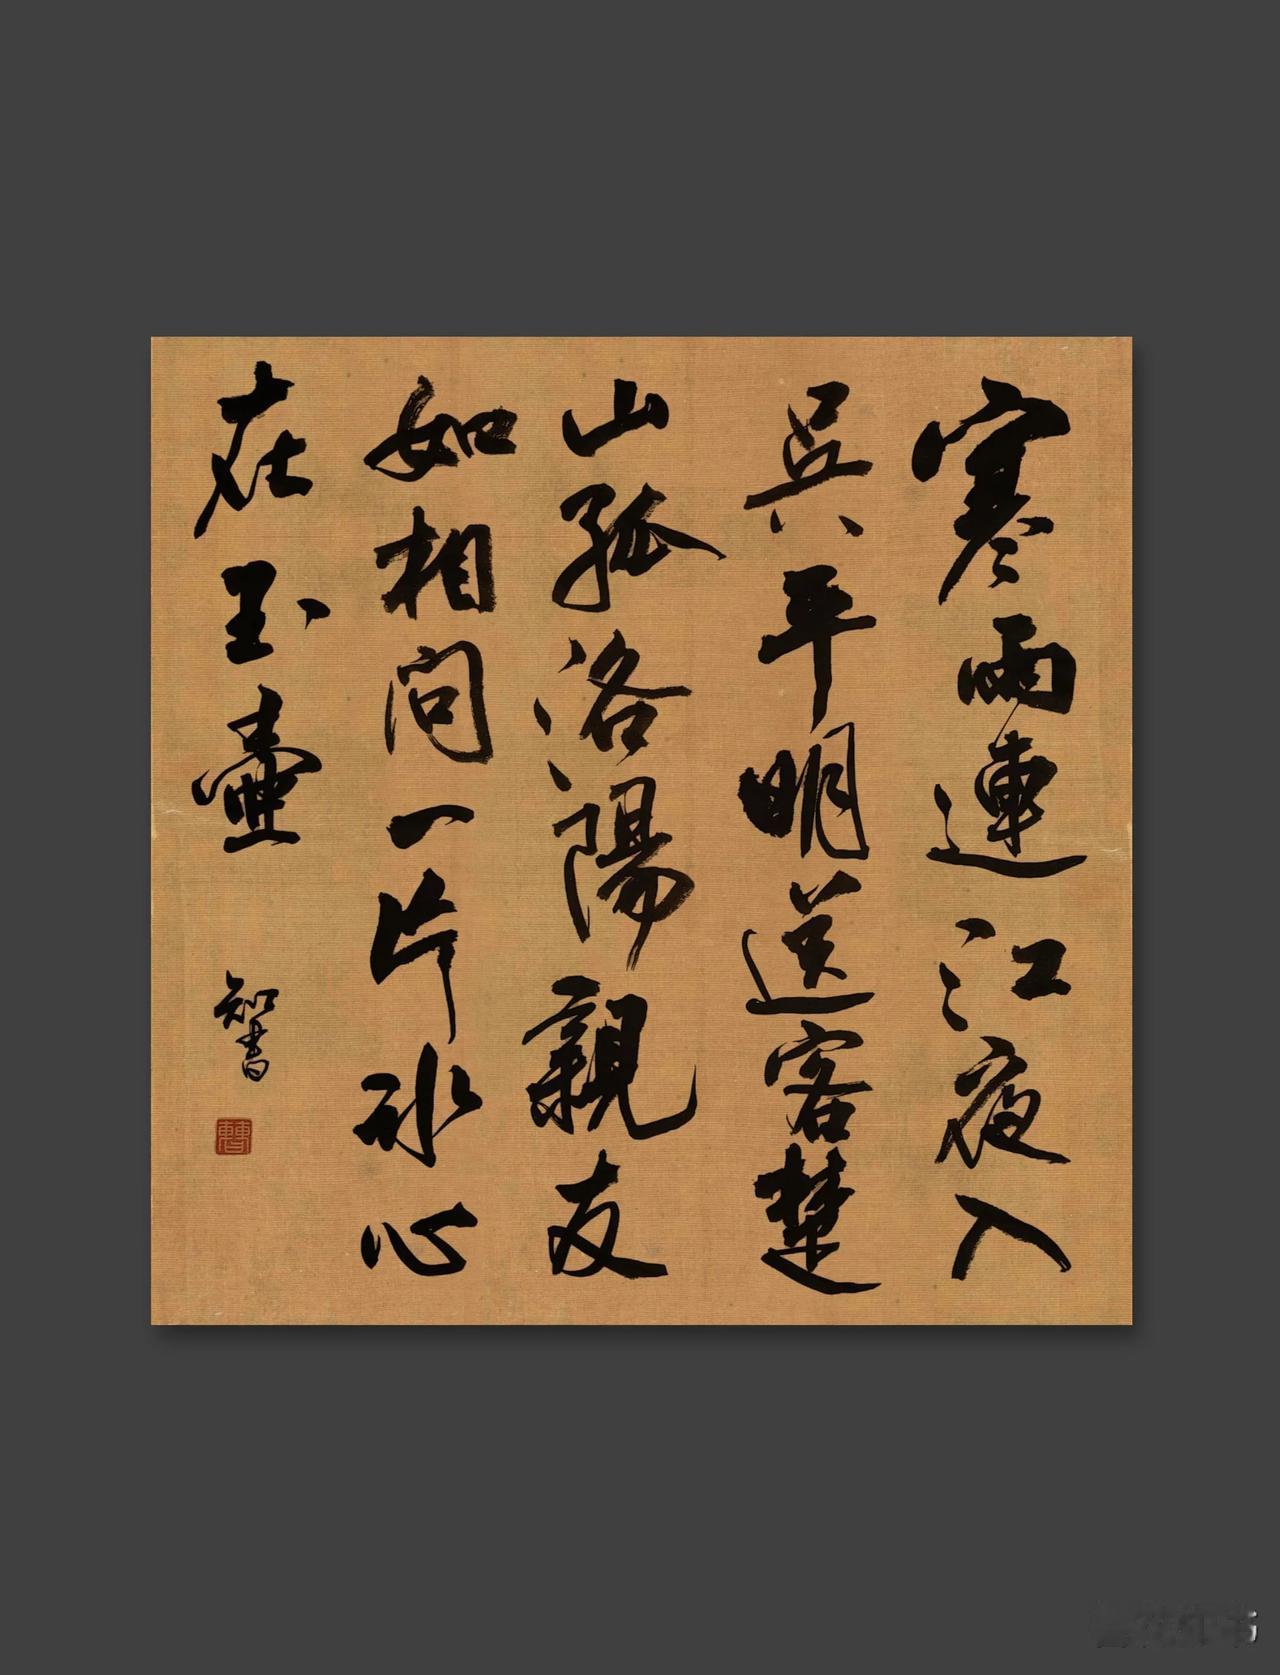 寒雨連江夜入
吳平明送客楚
山孤洛陽親友
如相問一片冰心
在玉壺
知書